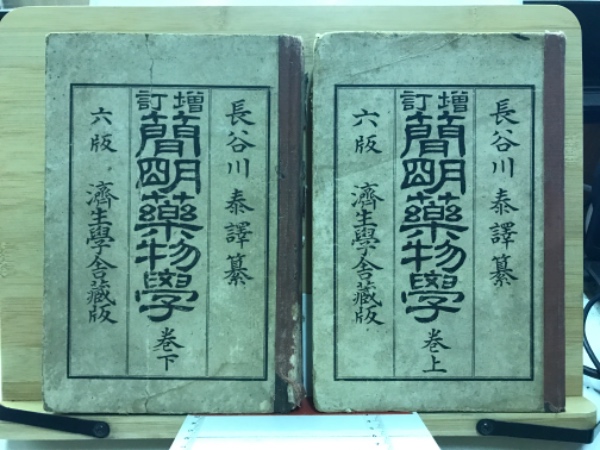 長谷川泰譯纂
增訂
簡明藥物學
卷上
六版
濟生學舍藏版
長谷川泰譯纂
增訂
簡明藥物學
卷下
六版
濟生學舍藏版